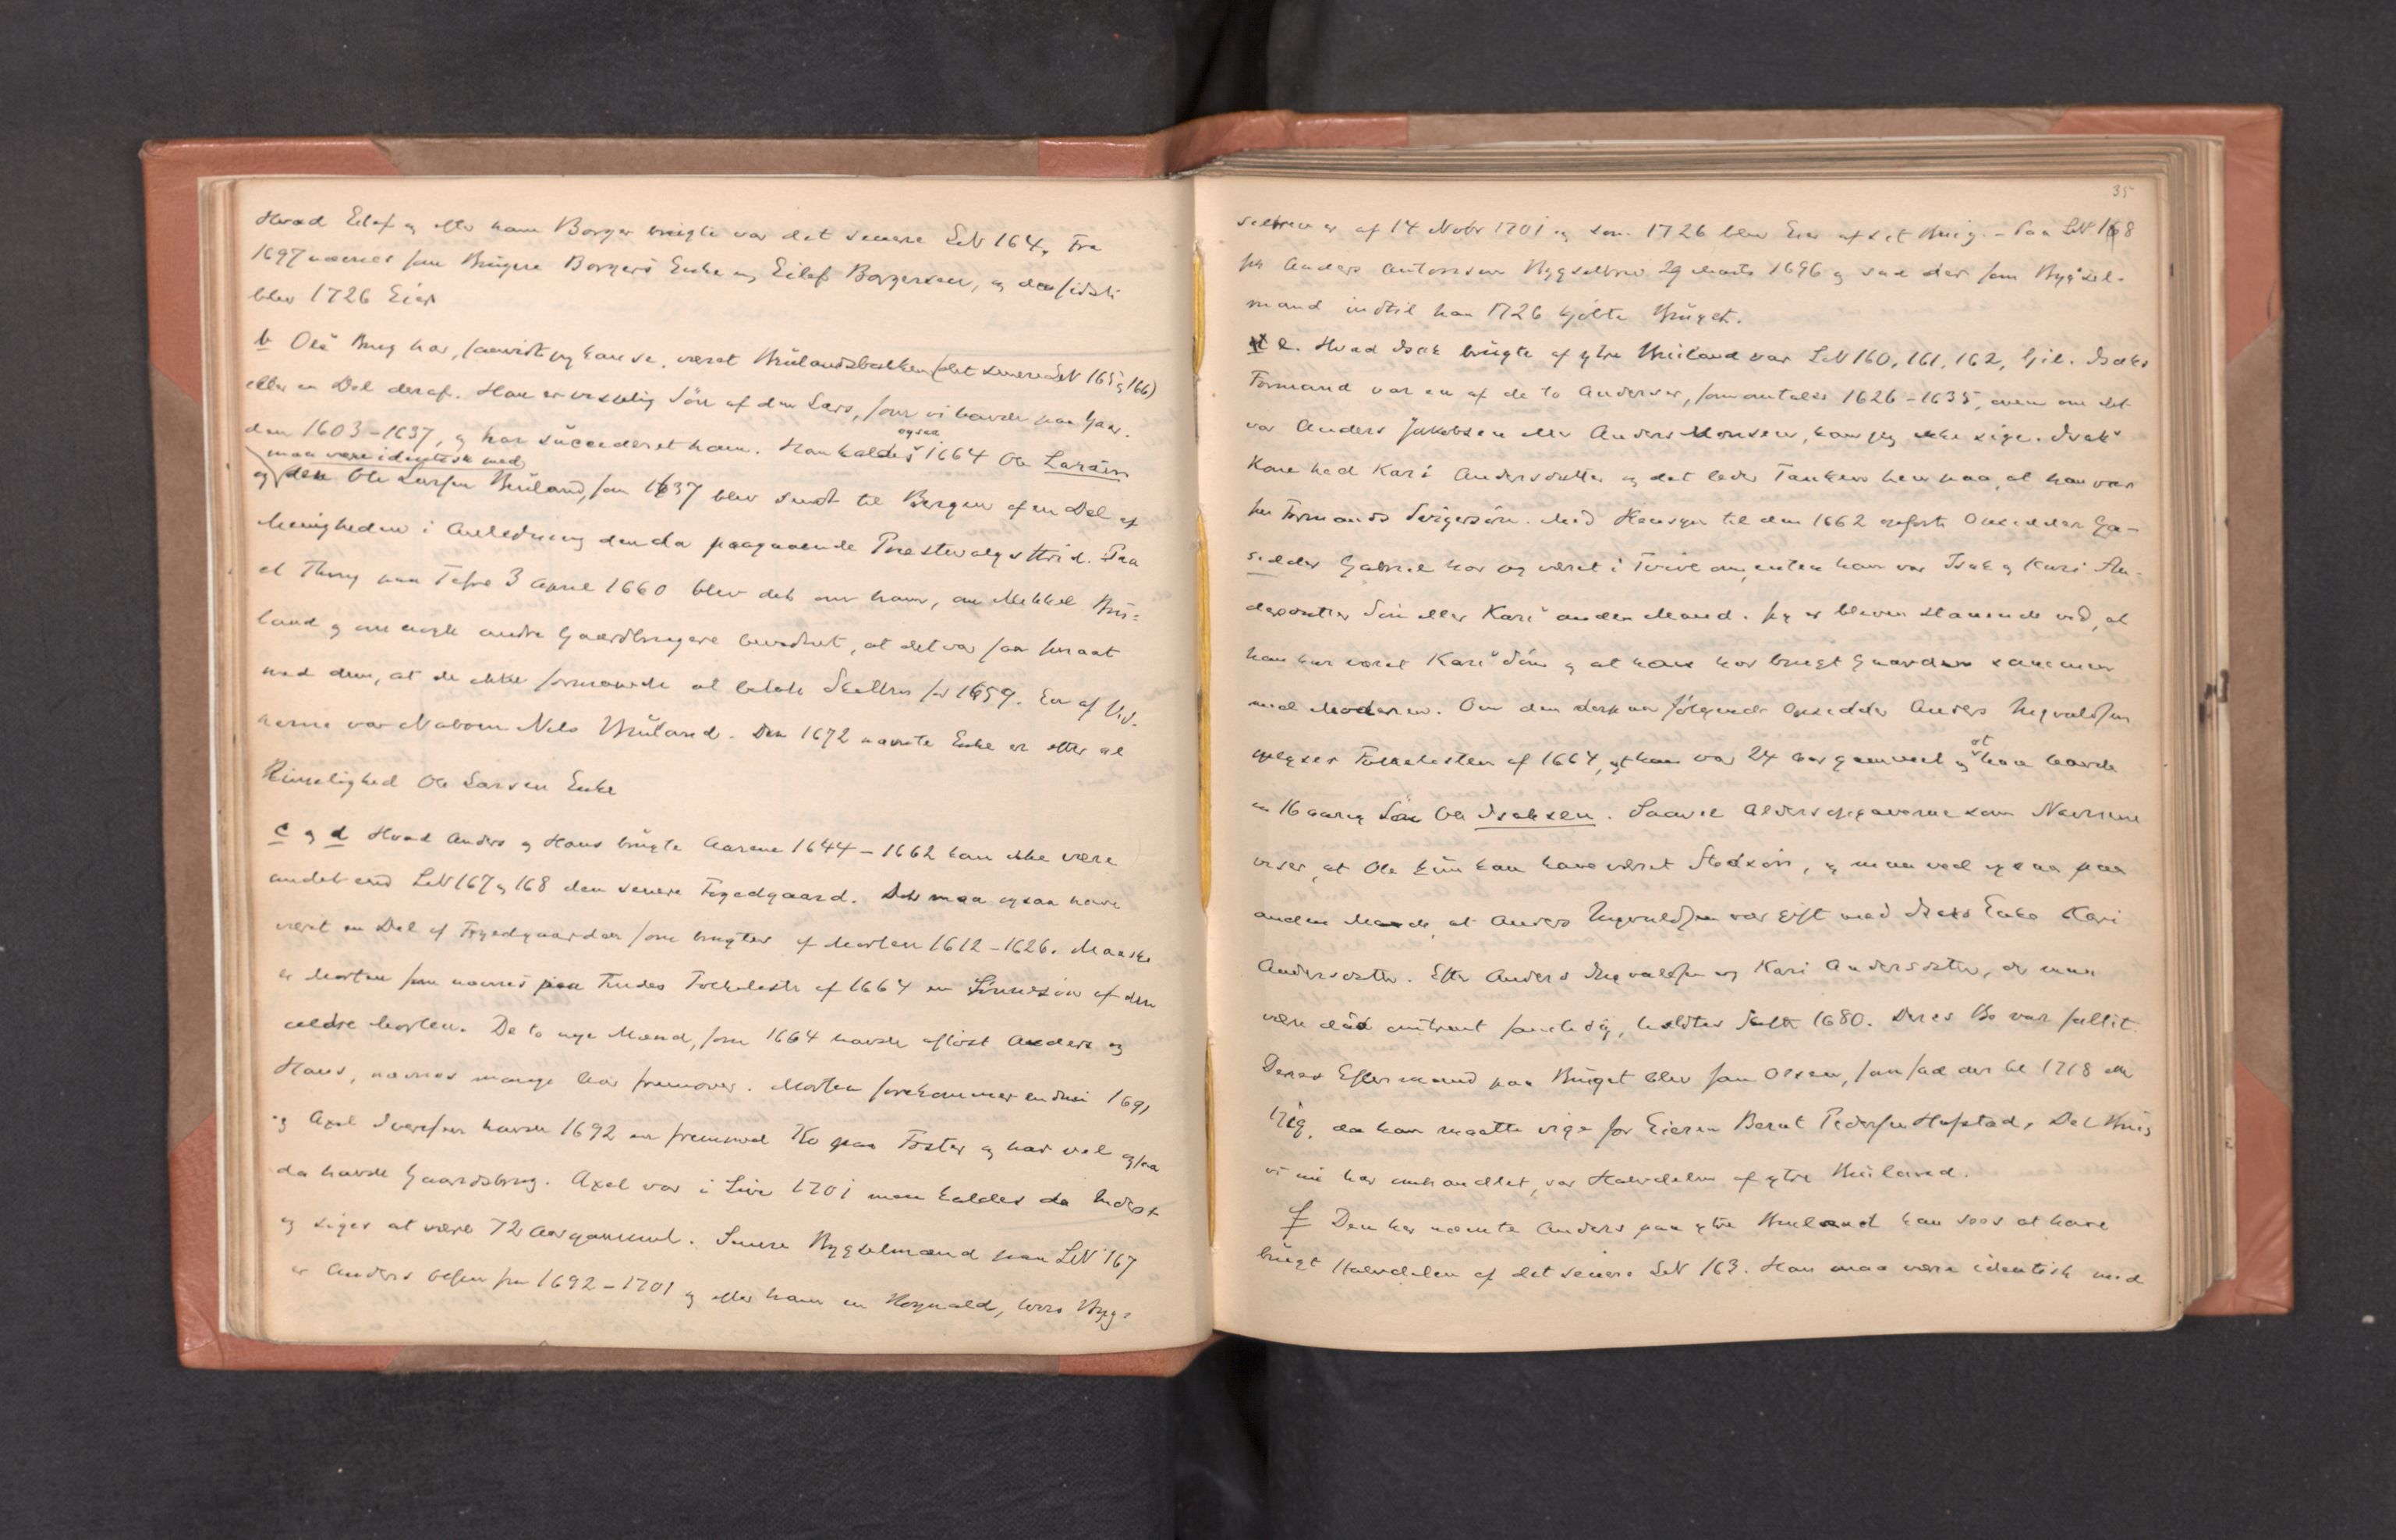 Hvad Eilef og efter ham Borger brugte var det senere LN 164. Fra
1697 nævnes som Brugere Borgers Enke og Eilef Borgersen, og den sidste
blev 1726 Eier
b Ole's Brug har, saavidt jeg kan se, været Brulandsbakken (det senere LN 165 og 166)
eller en Del deraf. Han er visselig Søn af den Lars, som vi havde paa Gaar-
den 1603-1637, og har succederet ham. Han kaldes også 1664 Ole Larsen
og maa være identisk med den Ole Larsen Bruland, som 1637 blev sendt til Bergen af en Del af
Menigheden i Anledning den da paagaaende Prestevalgsstrid. Paa
et Thing paa Tefre 3 April 1660 blev det om ham, om Mikkel Bru-
land og om nogle andre Gaardbrugere bevidnet, at det var saa smaat
med dem, at de ikke formaaede at betale Skatten for 1659. En af Vid-
nerne var Naboen Nels Bruland. Den 1672 nævnte Enke er efter al
Rimelighed Ole Larsens Enke
c og d Hvad Anders og Hans brugte Aarene 1644-1662 kan ikke være
andet end LN 167 og 168 den senere Fogedgaard. Det maa ogsaa have
været en Del af Fogedgaarden som brugtes af Morten 1612-1626. Maaske
er Morten som nævnes paa Tindes Folkeliste af 1664 en Sønnesøn af den
ældre Morten. De to nye Mænd, som 1664 havde afløst Anders og
Hans, nævnes mange Aar fremover. Morten forekommer endnu i 1691
og Axel Iversen havde 1692 en fremmed Ko paa Foster og har vel ogsaa
da havde Gaardsbrug. Axel var i Live 1701 men kaldes da Inderst
og siges at være 72 Aar gammel. Senere Bygselmænd paa LN 167
er Anders Olsen fra 1692-1701 og efter ham en Rognald, hvis Byg-
35
selbrev er af 14 Novbr 1701 og som 1726 blev Eier af sit Brug. - Paa LN 168
fik Anders Antonsen Bygselbrev 29 Marts 1696 og sad der som Bygsel-
mand indtil han 1726 kjøbte Bruget.
e. Hvad Isak brugte af ytre Bruland var LN 160, 161, 162, Gil. Isaks
Formand var en af de to Anderser, som omtales 1626-1635, men om det
var Anders Jakobsen eller Anders Monsen, kan jeg ikke sige. Isaks
Kone hed Kari Andersdatter og det leder Tanken hen paa, at han var
sin Formands Svigersøn. Med Hensyn til den 1662 opførte Opsidder Ga-
sidder Gabriel har jeg været i Tvivl om, enten han var Isak og Kari An-
dersdatters Søn eller Kari's anden Mand. Jeg er bleven staaende ved, at
han har været Kari's Søn og at han har brugt Gaarden sammen
med Moderen. Om den derpaa følgende Opsidder Anders Ingvaldsen
oplyser Folkelisten af 1664, at han var 24 Aar gammel og at han havde
en 16 aarig Søn Ole Isaksen. Saavel Aldersopgaverne som Navnene
viser, at Ole kun kan have været Stedsøn, og man ved ogsaa paa
anden Maade, at Anders Ingvaldsen var gift med Isaks Enke Kari
Andersdatter. Efter Anders Ingvaldsen og Kari Andersdatter, der maa
være død omtrent samtidig, holdtes Skifte 1680. Deres Bo var fallit.
Deres Eftermand paa Bruget blev Jon Olsen, som sad der til 1718 eller
1719, da han maatte vige for Eieren Bernt Pedersen Hafstad. Det Brug
vi nu har omhandlet, var Halvdelen af ytre Bruland.
f Den her nævnte Anders paa ytre Bruland kan sees at have
brugt Halvdelen af det senere LN 163. Han maa være identisk med